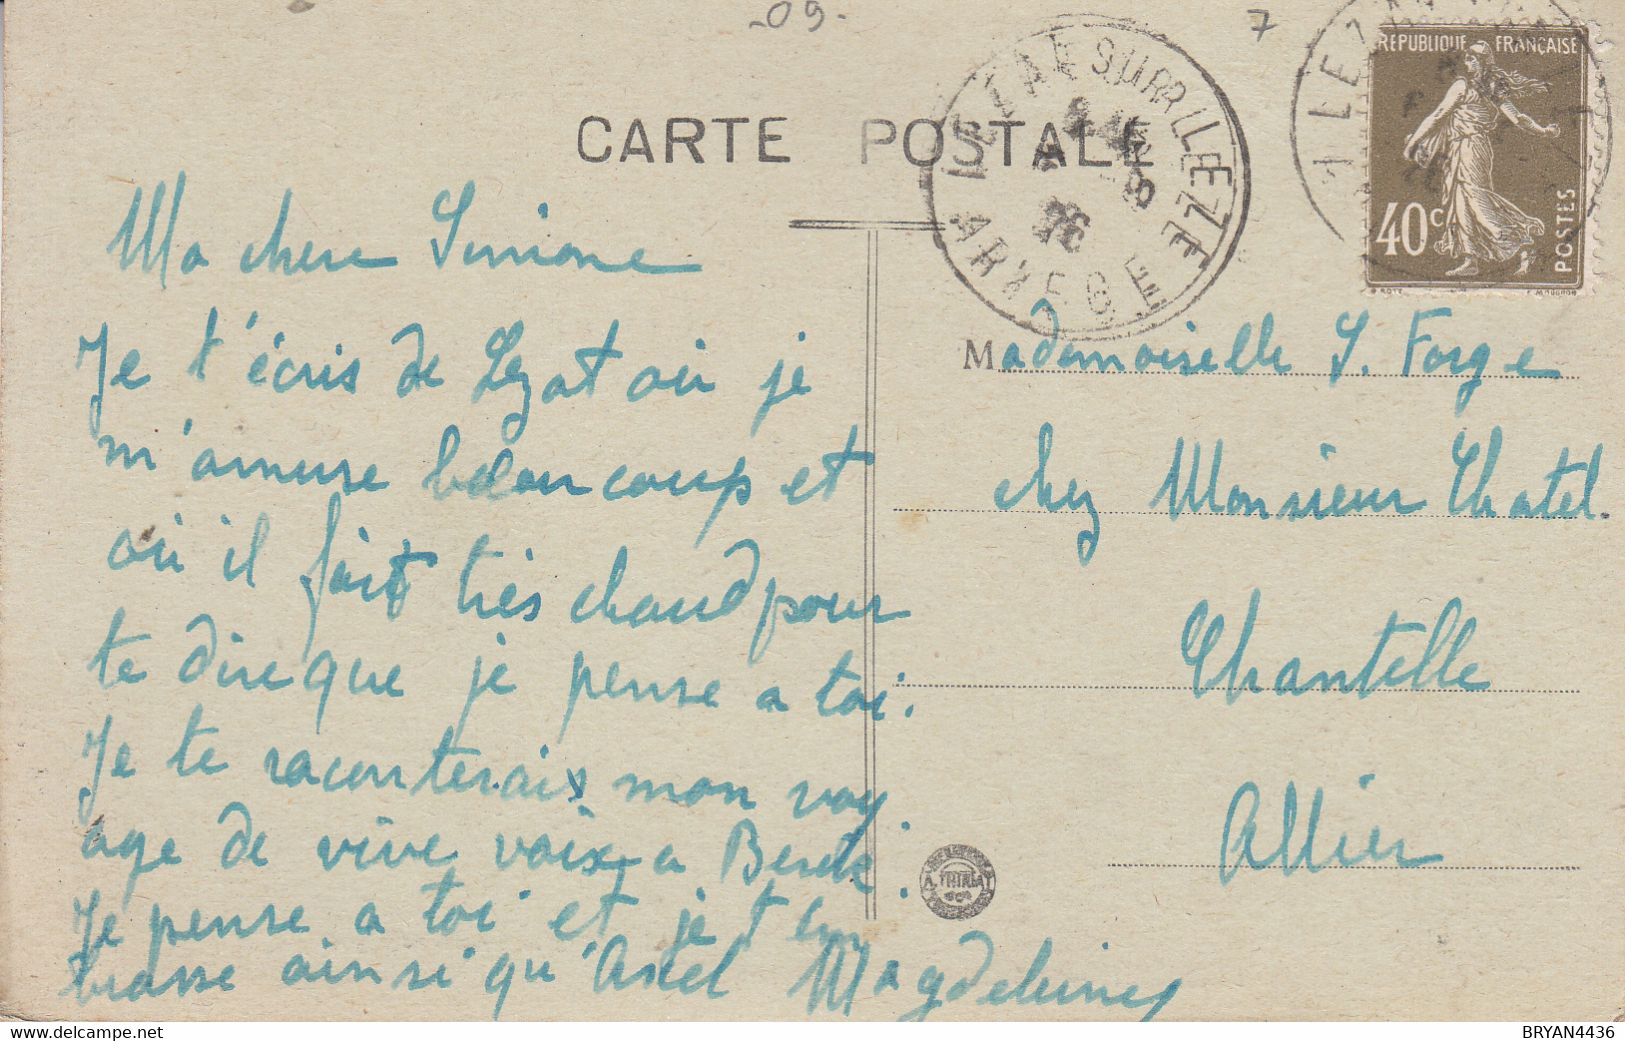 -09-
7
CARTE POSTALE
LEZAT SUR LEZE
ARIEGE
26
REPUBLIQUE FRANÇAISE
40c
POSTES
Ma chere Simone
Je t'écris de Lezat où je
m'amuse beaucoup et
où il fait très chaud pour
te dire que je pense a toi.
Je te raconterais mon voy
age de vive voix a
Je pense a toi et je t'em
brasse ainsi qu'Axel Magdeleine
Mademoiselle S. Forge
chez Monsieur Chatel.
Chantelle
Allier
BRYAN4436
https://www.delcampe.net